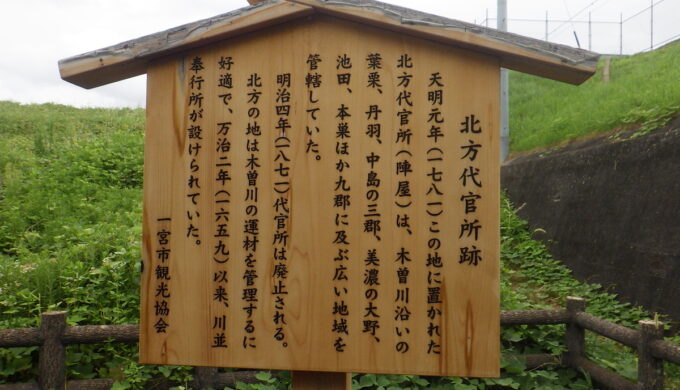 北方代官所跡
天明元年(一七八一)この地に置かれた
北方代官所(陣屋)は、木曽川沿いの
葉栗、丹羽、中島の三郡、美濃の大野、
池田、本巣ほか九郡に及ぶ広い地域を
管轄していた。
明治四年(一八七一)代官所は廃止される。
北方の地は木曽川の運材を管理するに
好適で、万治二年(一六五九)以来、川並
奉行所が設けられていた。
一宮市観光協会